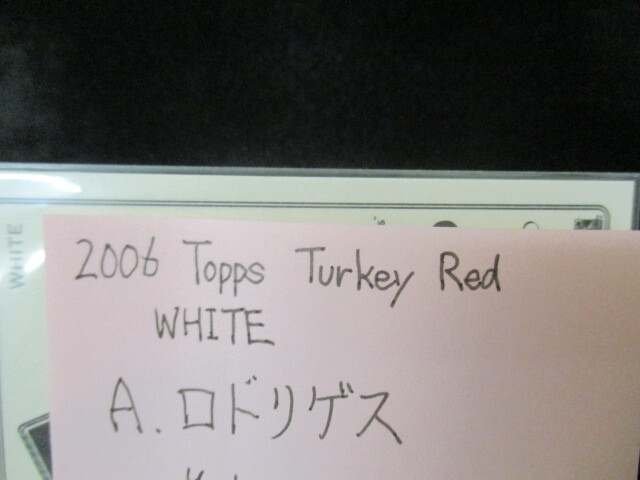 WHITE
2006 Topps Turkey Red
WHITE
A. ロドリゲス